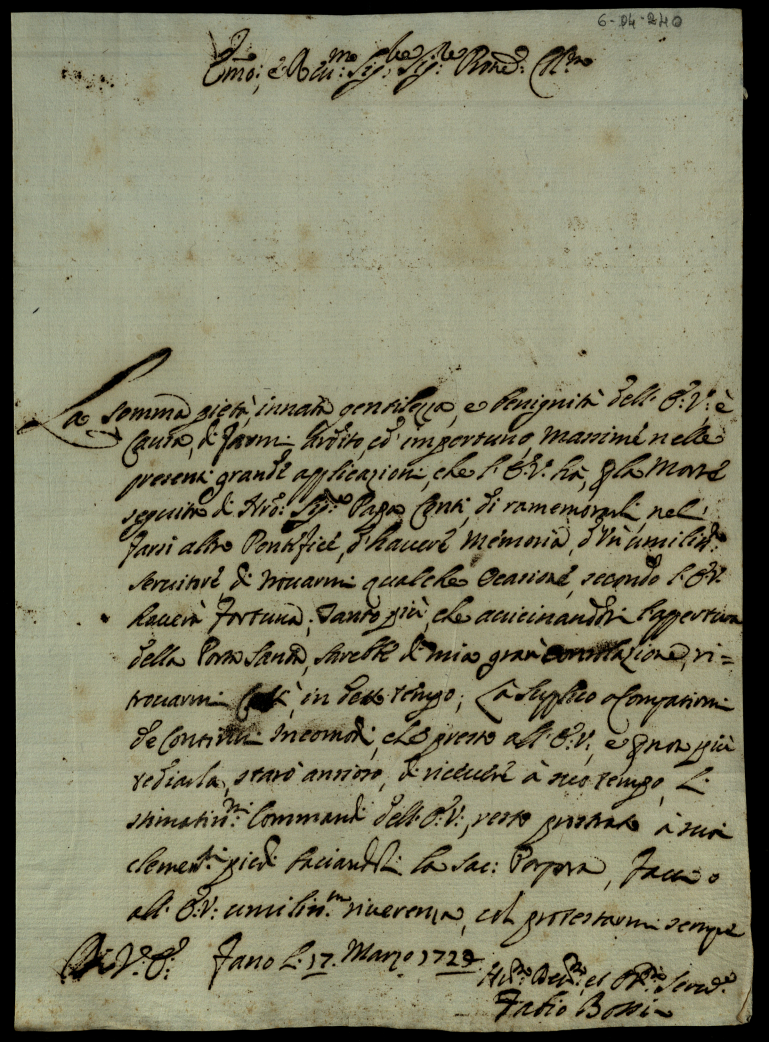 6-04-240
Emo: e Reu:mo Sig:re Sig:re Prone: Col:mo
La somma pietà, innata gentilezza, e benignità dell' E:V: è
causa, di farmi ardito, ed' importuno, massime nelle
presenti grandi applicazioni, che l' E:V: hà, p la Morte
seguita di Nro: Sig:re Papa Conti, di ramemorarli, nel
farsi altro Pontefice, d'hauere memoria, d'Un' umiliss:o
seruitore, di trouarmi qualche Ocasione, secondo l' E:V:
hauerà fortuna, Tanto più, che auicinandosi l'appertura
della Porta Santa, sarebbe di mia gran consolazione, ri=
trouarmi in detto tempo; La Supplico a Compatirmi
de Continui incomodi, che presto all' E:V:, e p non più
tediarla, starò ansioso, di riceuere à suo tempo, Li
stimatiss:mi Commandi dell' E:V:, resto prostrato à suoi
clementi piedi baciandoli la Sac: Porpora, faccio
all' E:V: umiliss:ma riuerenza, col protestarmi sempre
Di V:E: Fano Li 17. Marzo 1724
Um:mo Deu:mo, et Ob:mo Seru:e
Fabio Bossi